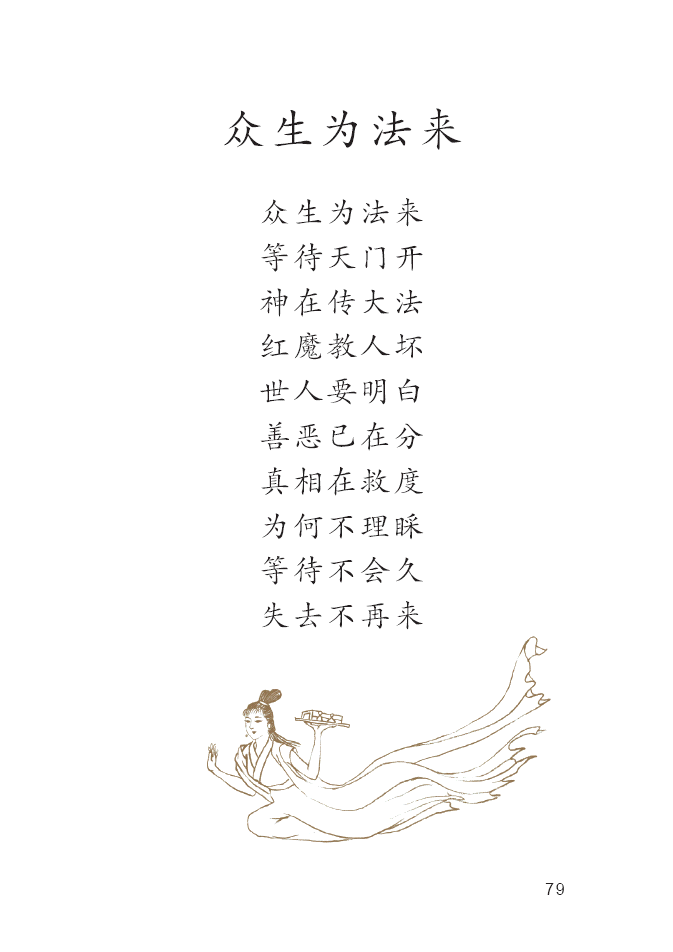 众生为法来
众生为法来
等待天门开
神在传大法
红魔教人坏
世人要明白
善恶已在分
真相在救度
为何不理睬
等待不会久
失去不再来
79